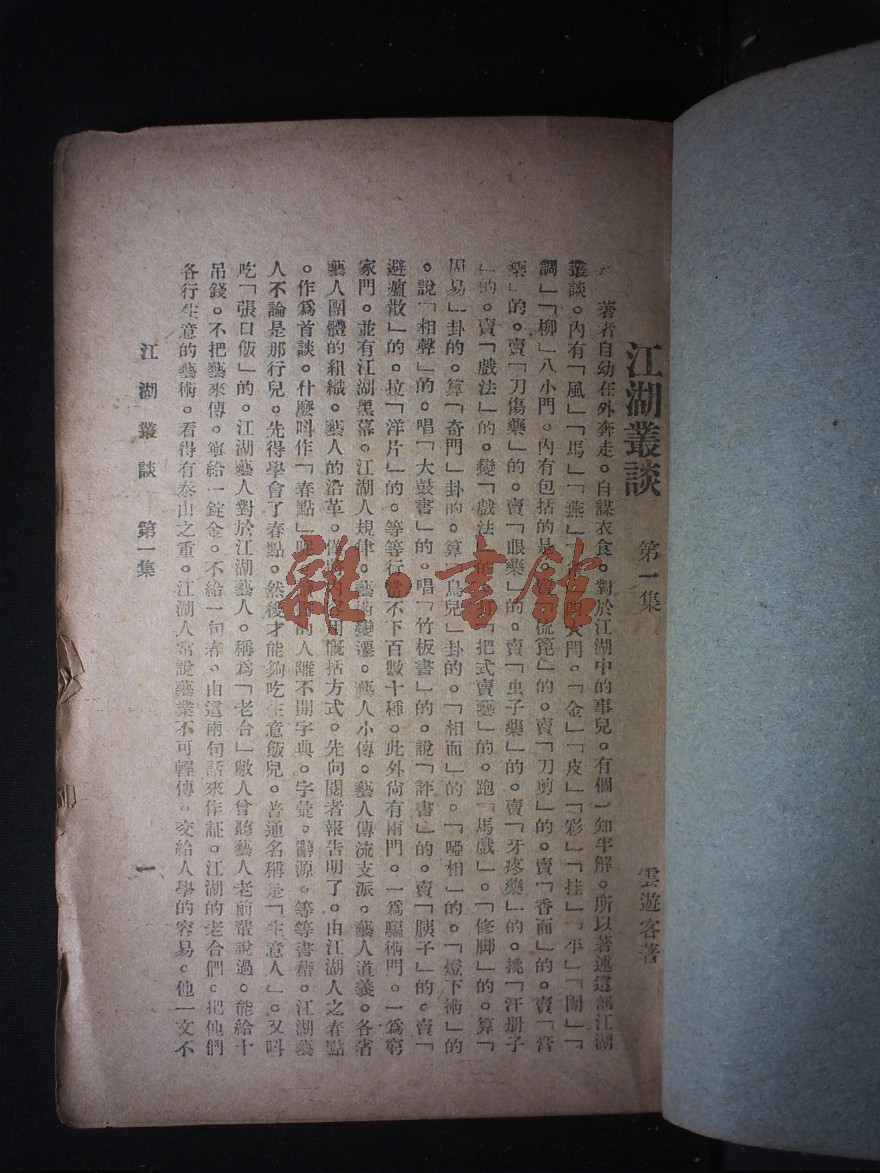 江湖叢談 第一集 雲遊客著
著者自幼在外奔走。自謀衣食。對於江湖中的事兒。有個一知半解。所以著述這部江湖
叢談。內有「風」「馬」「燕」 大門。「金」「皮」「彩」「挂」「平」「團」「
調」「柳」八小門。內有包括的是。 梳篦」的。賣「刀剪」的。賣「香面」的。賣「膏
藥」的。賣「刀傷藥」的。賣「眼藥」的。賣「虫子藥」的。賣「牙疼藥」的。挑「汗册子
」的。賣「戲法」的。變「戲法 的 「把式賣藝」的。跑「馬戲」。「修脚」的。算「
周易」卦的。算「奇門」卦的。算「鳥兒」卦的。「相面」的。「啞相」的。「燈下術」的
。說「相聲」的。唱「大鼓書」的。唱「竹板書」的。說「評書」的。賣「胰子」的。賣「
避瘟散」的。拉「洋片」的。等等行當不下百數十種。此外尙有兩門。一爲騙術門。一爲窮
家門。並有江湖黑幕。江湖人規律。藝術變遷。藝人小傳。藝人傳流支派。藝人道義。各省
藝人團體的組織。藝人的沿革。僅將內容用慨括方式。先向閱者報告明了。由江湖人之春點
。作爲首談。什麽叫作「春點」呢 的人離不開字典。字彙。辭源。等等書藉。江湖藝
人不論是那行兒。先得學會了春點。然後才能夠吃生意飯兒。普通名稱是「生意人」。又叫
吃「張口飯」的。江湖藝人對於江湖藝人。稱爲「老合」敝人曾聽藝人老前輩說過。能給十
吊錢。不把藝來傳。寧給一錠金。不給一句春。由這兩句話來作証。江湖的老合們。把他們
各行生意的藝術。看得有泰山之重。江湖人常說藝業不可輕傳。交給人學的容易。他一文不
江湖叢談 第一集 一
雜·書館